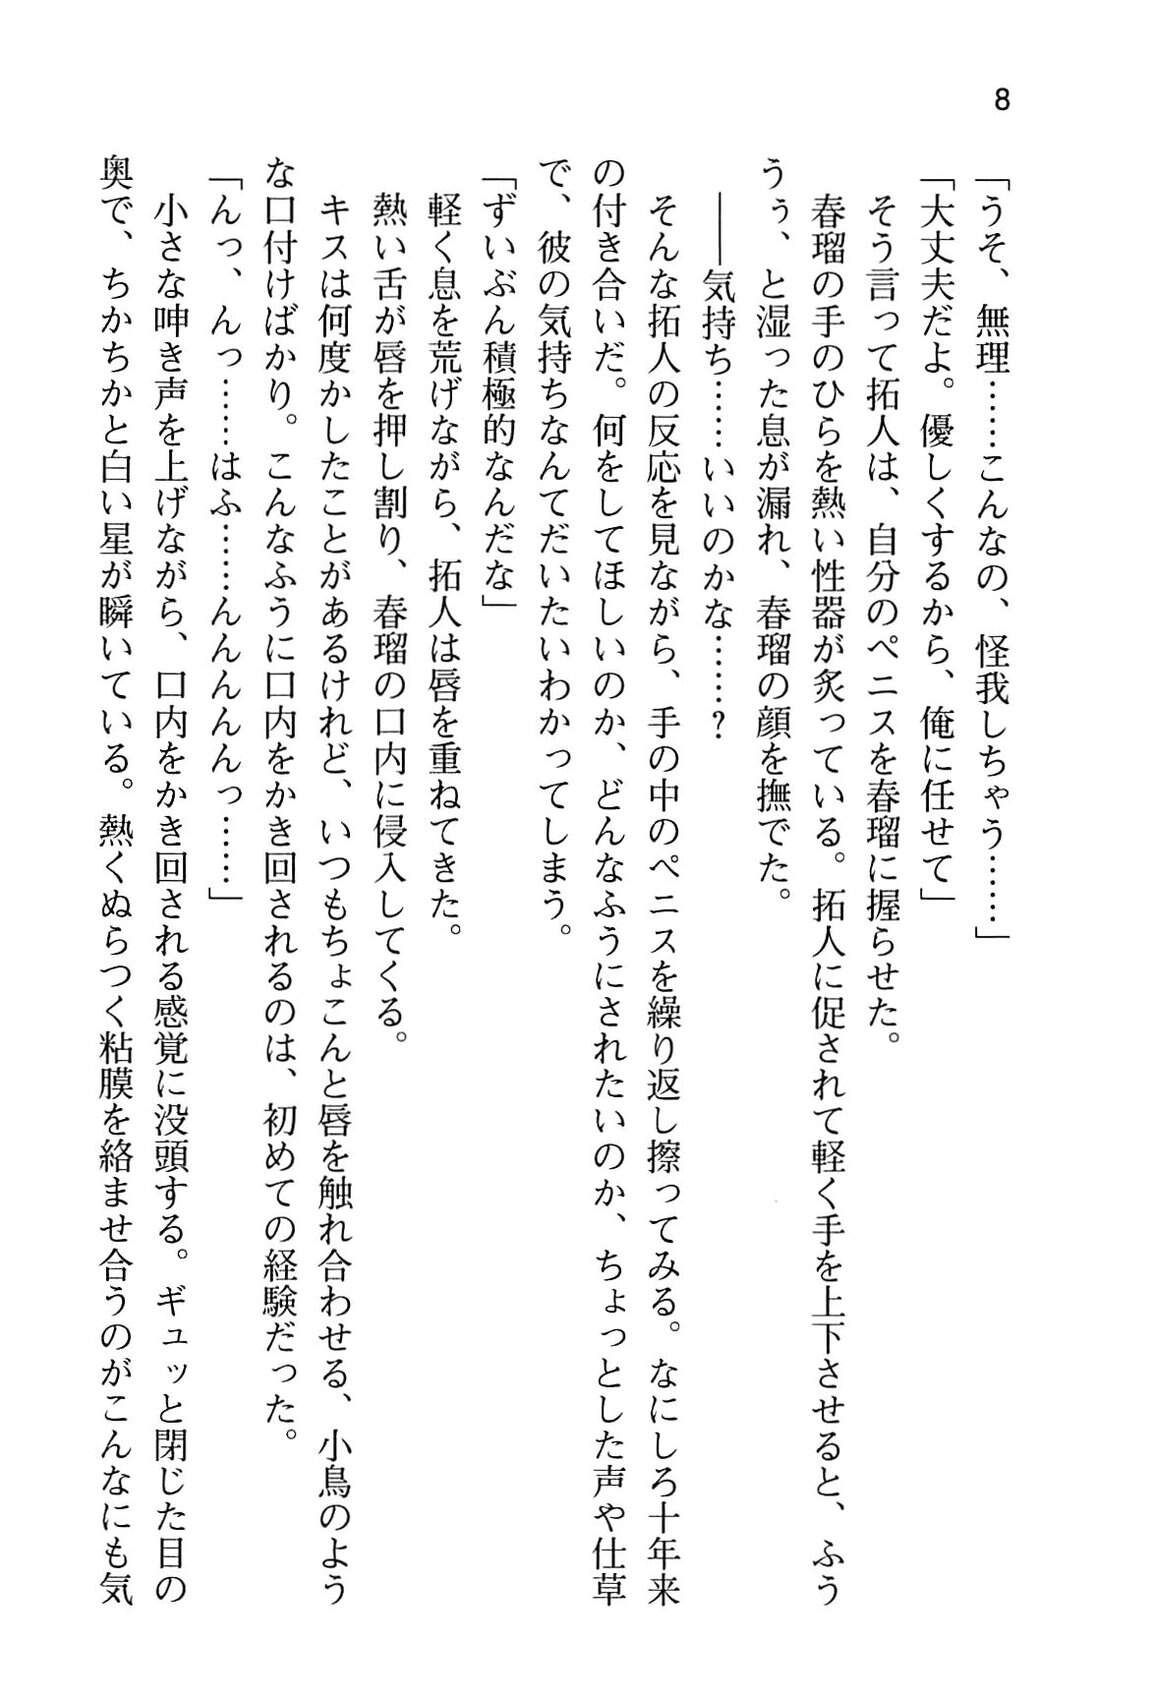 8
「うそ、無理……こんなの、怪我しちゃう……」
「大丈夫だよ。優しくするから、俺に任せて」
そう言って拓人は、自分のペニスを春瑠に握らせた。
春瑠の手のひらを熱い性器が炙っている。拓人に促されて軽く手を上下させると、ふう
うぅ、と湿った息が漏れ、春瑠の顔を撫でた。
――気持ち……いいのかな……？
そんな拓人の反応を見ながら、手の中のペニスを繰り返し擦ってみる。なにしろ十年来
の付き合いだ。何をしてほしいのか、どんなふうにされたいのか、ちょっとした声や仕草
で、彼の気持ちなんてだいたいわかってしまう。
「ずいぶん積極的なんだな」
軽く息を荒げながら、拓人は唇を重ねてきた。
熱い舌が唇を押し割り、春瑠の口内に侵入してくる。
キスは何度かしたことがあるけれど、いつもちょこんと唇を触れ合わせる、小鳥のよう
な口付けばかり。こんなふうに口内をかき回されるのは、初めての経験だった。
「んっ、んっ……はふ……んんんんっ……」
小さな呻き声を上げながら、口内をかき回される感覚に没頭する。ギュッと閉じた目の
奥で、ちかちかと白い星が瞬いている。熱くぬらつく粘膜を絡ませ合うのがこんなにも気